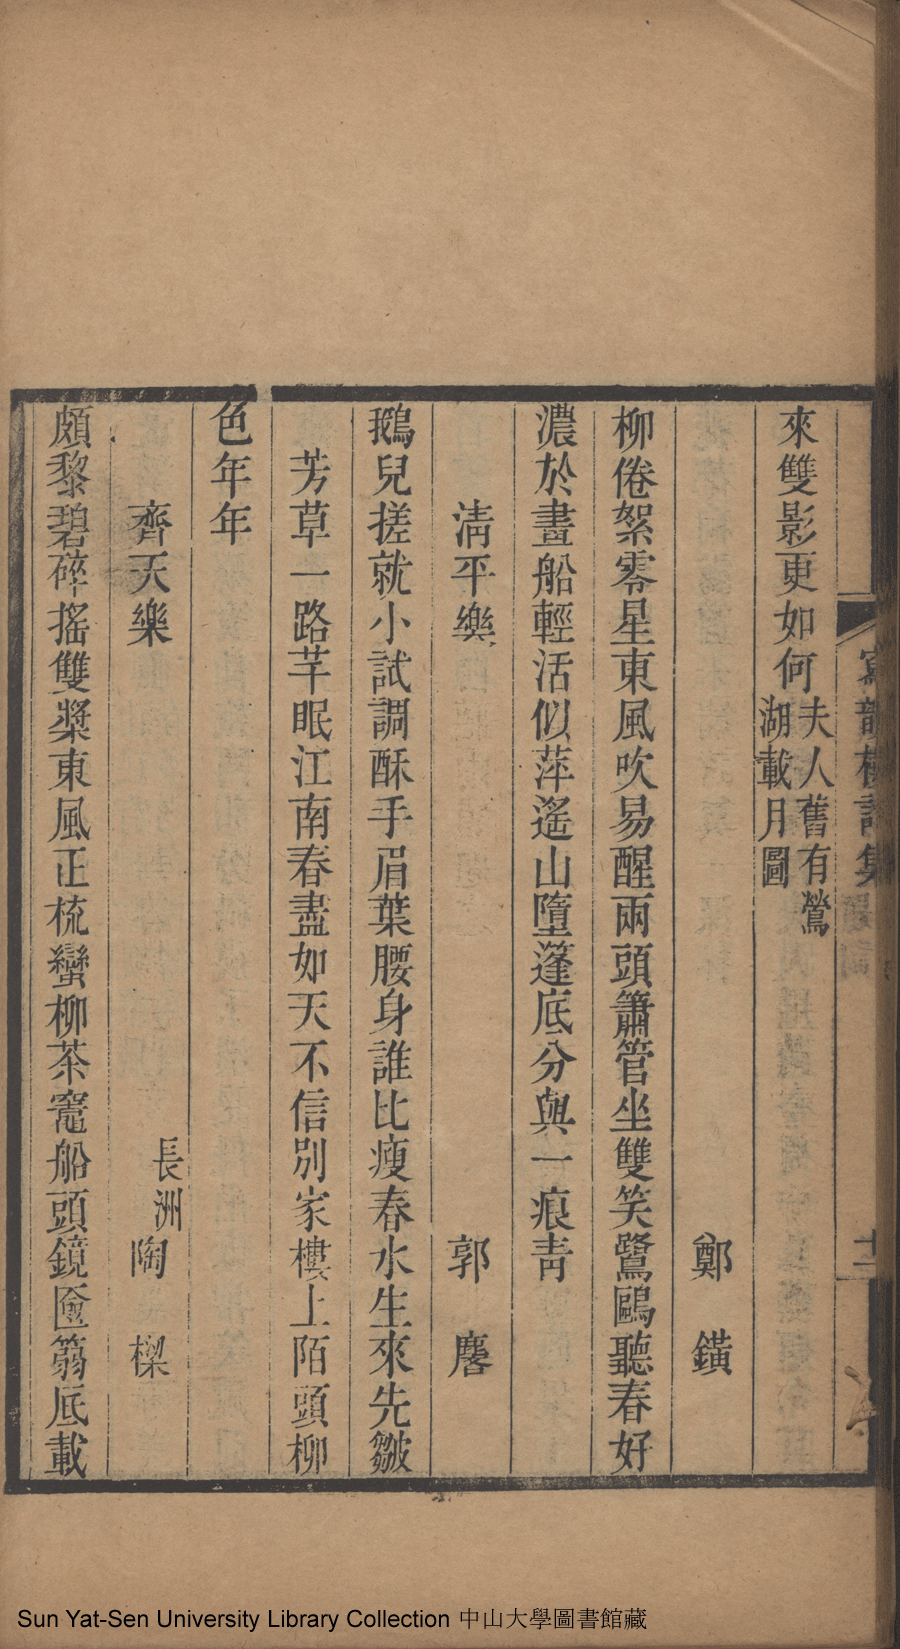 來雙影更如何夫人舊有鶯湖載月圖
鄭鐄
柳倦絮零星東風吹易醒兩頭簫管坐雙笑鷺鷗聽春好
濃於畫船輕活似萍遙山墮篷底分與一痕靑
淸平樂
郭麐
鵝兒搓就小試調酥手眉葉腰身誰比瘦春水生來先皺
芳草一路芊眠江南春盡如天不信別家樓上陌頭柳
色年年
齊天樂
長洲陶樑
頗黎碧碎搖雙槳東風正梳蠻柳茶竈船頭鏡匳篛底載
寫韻樓詩集
十二
Sun Yat-Sen University Library Collection 中山大學圖書館藏